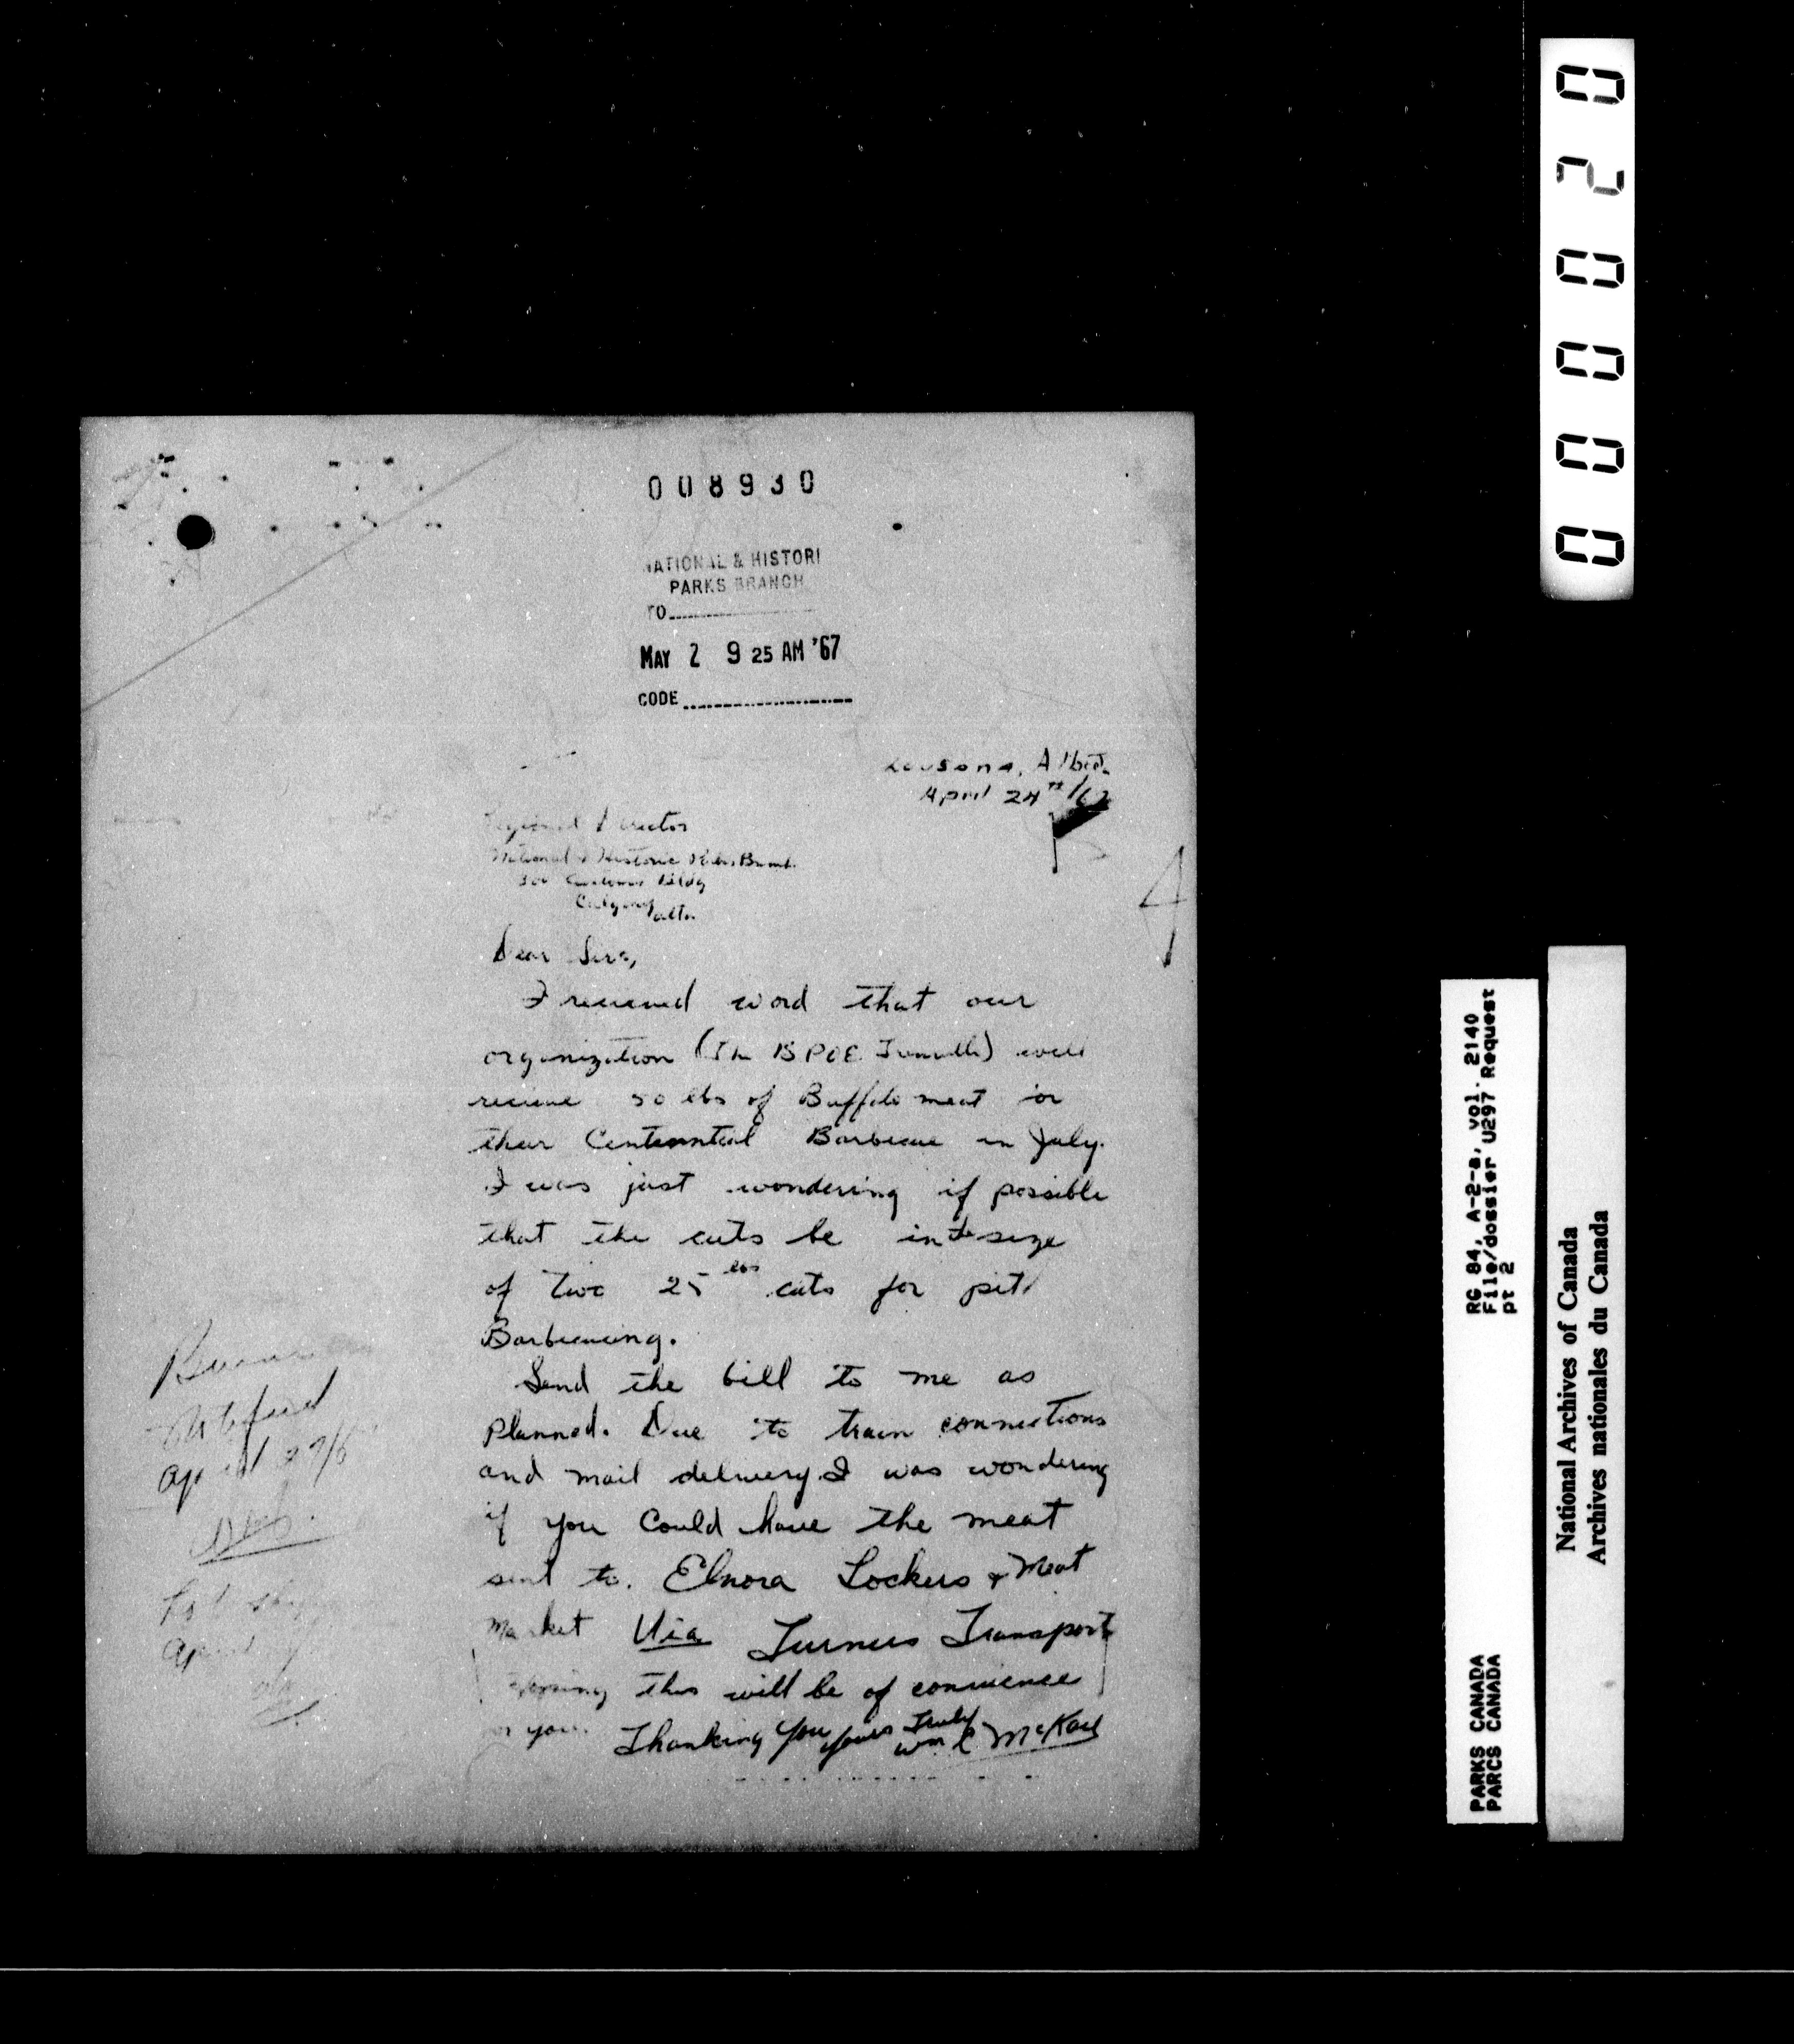 008930
NATIONAL & HISTORI
PARKS BRANCH
TO
MAY 2 9 25 AM '67
CODE
Lousana, Alberta
April 24th/67
Regional Director
National & Historic Parks Branch
300 Customs Bldg
Calgary Alta.
4
Dear Sirs,
I recieved word that our
organization (The BPOE Trenville) will
recieve 50 lbs of Buffalo meat for
their Centenntial Barbecue in July.
I was just wondering if possible
that the cuts be in the size
of two 25 lbs cuts for pit
Barbecueing.
Send the bill to me as
planned. Due to train connections
and mail delivery I was wondering
if you could have the meat
sent to. Elnora Lockers & Meat
Market Via Turners Transport
this will be of convience
for you. Thanking You Yours Truly
Wm C McKay
April 27/6
April
000020
RG 84, A-2-a, vol. 2140
File/dossier U297 Request
pt 2
PARKS CANADA
PARCS CANADA
National Archives of Canada
Archives nationales du Canada